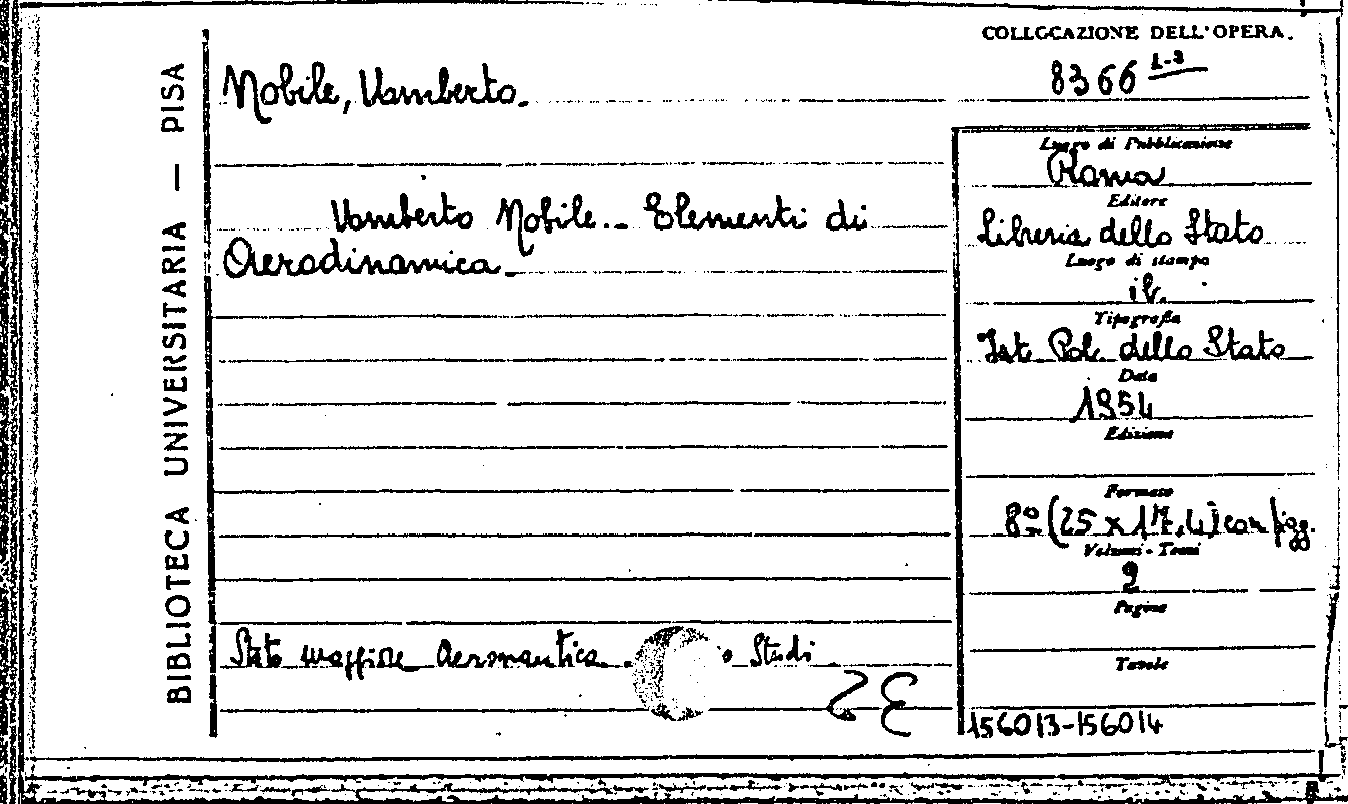 BIBLIOTECA UNIVERSITARIA — PISA
COLLOCAZIONE DELL'OPERA.
8366 1-2
Nobile, Umberto.
Umberto Nobile.- Elementi di
Aerodinamica.
Luogo di Pubblicazione
Roma
Editore
Libreria dello Stato
Luogo di stampa
ib.
Tipografia
Ist. Pol. dello Stato
Data
1954
Edizione
Formato
8º (25 x 17,4) con figg.
Volumi - Tomi
2
Pagine
Tavole
Stato maggiore Aeronautica. Studi
156013-156014